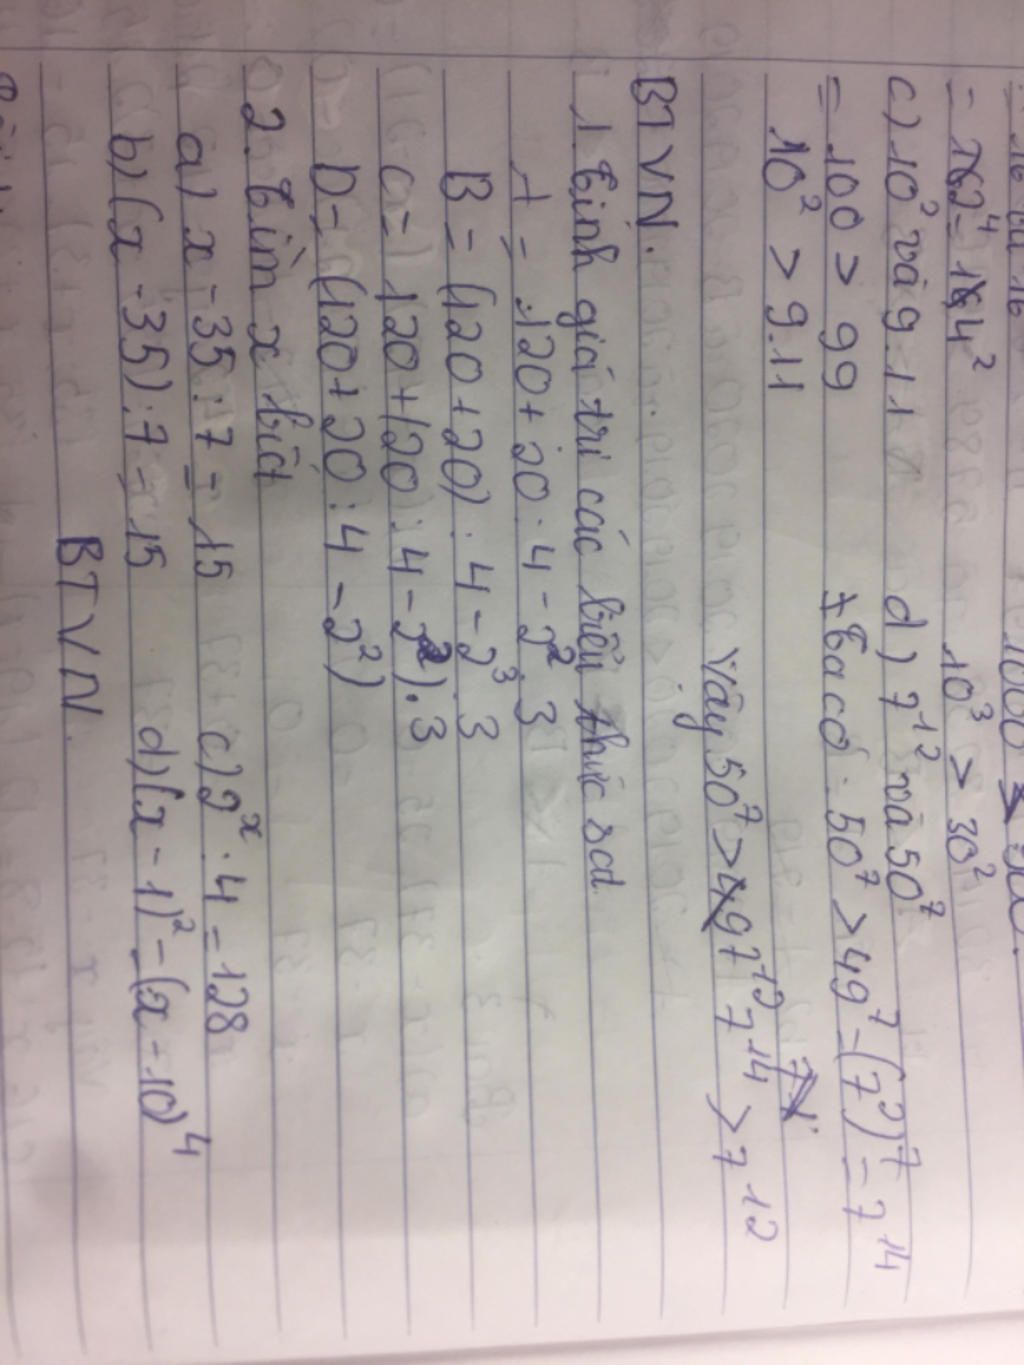 16 và 16 1000 > 900.
= 2⁴ = 4² 10³ > 30²
c) 10² và 9.11 d) 7¹² và 50⁷
= 100 > 99 Ta có: 50⁷ > 49⁷ = (7²)⁷ = 7¹⁴
10² > 9.11
Vậy 50⁷ > 7¹² 7¹⁴ > 7¹²
BTVN.
1. Tính giá trị các biểu thức sau
A = 120 + 20 : 4 - 2². 3
B = (120 + 20) : 4 - 2³. 3
C = 120 + (20 : 4 - 2²). 3
D = (120 + 20 : 4 - 2²)
2. Tìm x biết
a) x - 35 : 7 = 15 c) 2ˣ . 4 = 128
b) (x - 35) : 7 = 15 d) (x - 1)² = (x - 10)⁴
BTVN.